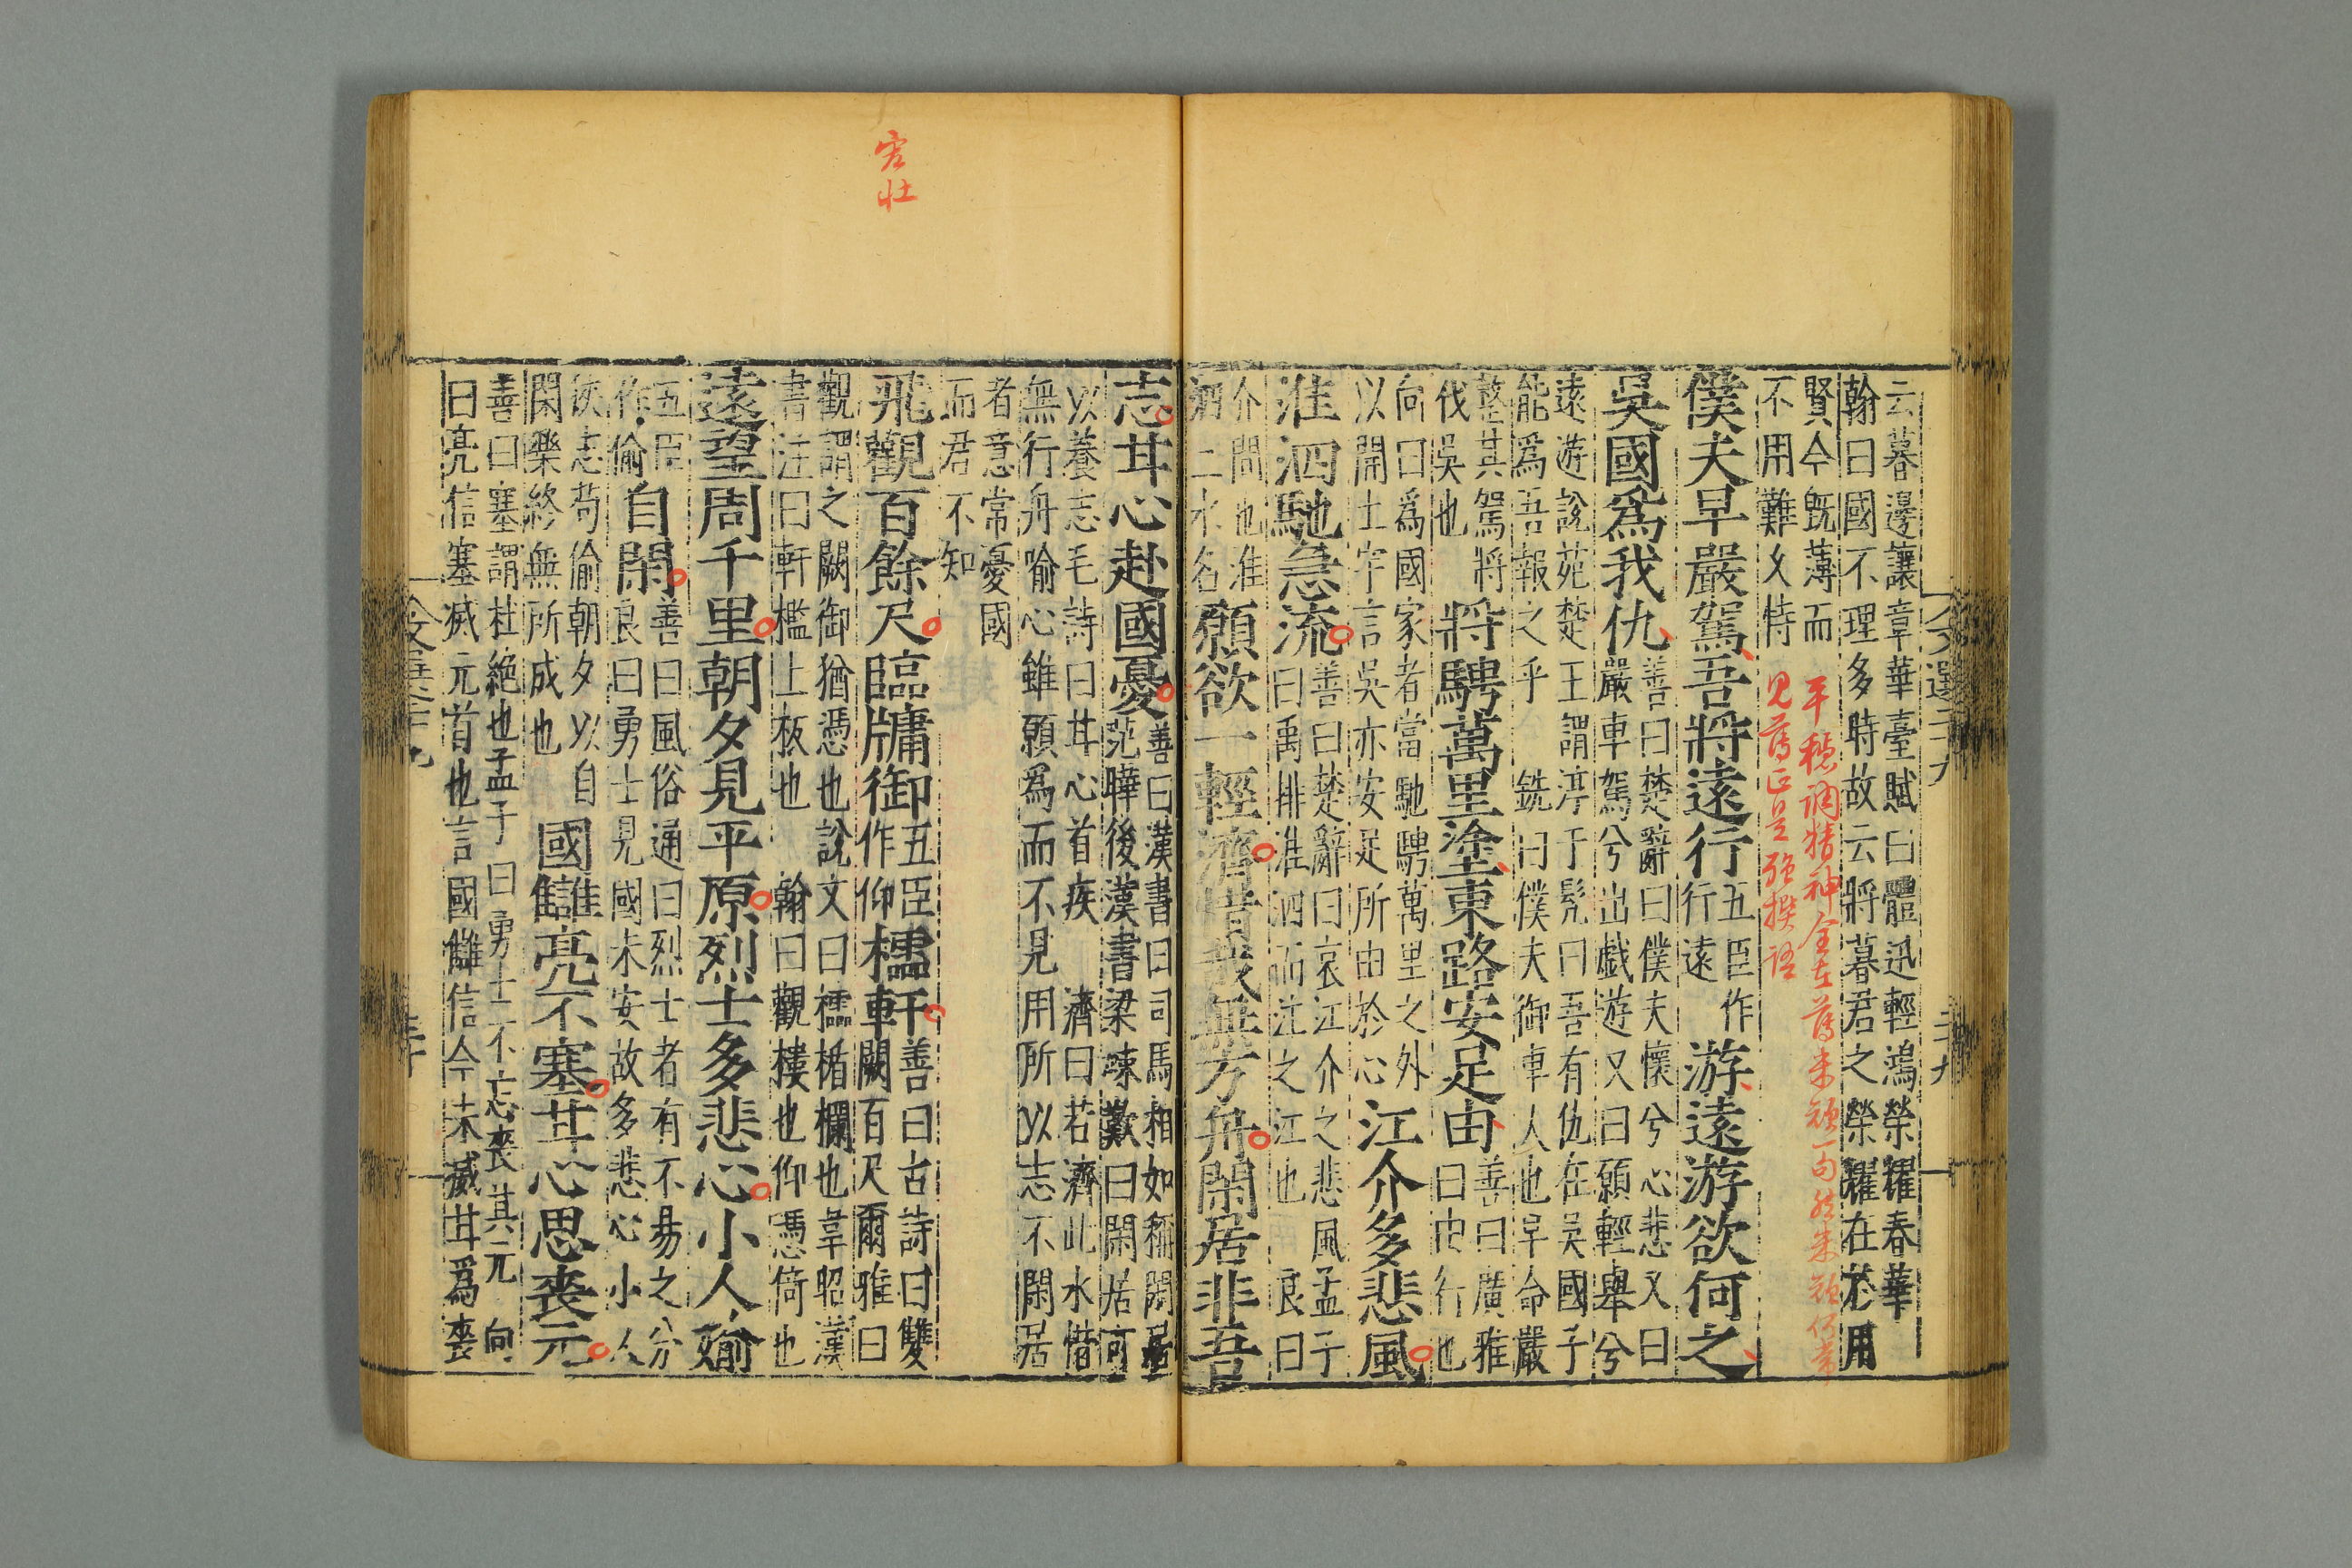 云暮邊讓章華臺賦曰體迅輕鴻榮耀春華
翰曰國不理多時故云將暮君之榮耀在於用
賢今既薄而
不用難久恃
平穩調精神全在舊朱顏一句
見舊正是強撰語
僕夫早嚴駕吾將遠行五臣作行遠游遠游欲何之
吳國爲我仇善曰楚辭曰僕夫懷兮心悲又曰
嚴車駕兮出戲遊又曰願輕舉兮
遠遊說苑楚王謂淳于髡曰吾有仇在吳國子
能爲吾報之乎 銑曰僕夫御車人也早命嚴
整其駕將
伐吳也
將騁萬里塗東路安足由善曰廣雅
曰由行也
向曰爲國家者當馳騁萬里之外
以開土宇言吳亦安足所由於心
江介多悲風
淮泗馳急流善曰楚辭曰哀江介之悲風孟子
曰禹排淮泗而注之江也 良曰
介間也淮
泗二水名
願欲一輕濟惜哉無方舟閑居非吾
志甘心赴國憂善曰漢書曰司馬相如稱閑居
范曄後漢書梁竦歎曰閑居可
以養志毛詩曰甘心首疾 濟曰若濟此水惜
無行舟喻心雖願爲而不見用所以志不閑居
者意常憂國
而君不知
宏壯
飛觀百餘尺臨牖御五臣作仰櫺軒善曰古詩曰雙
闕百尺爾雅曰
觀謂之闕御猶憑也說文曰櫺楯欄也韋昭漢
書注曰軒檻上板也 翰曰觀樓也仰憑倚也
遠望周千里朝夕見平原烈士多悲心小人媮
五臣
作偷
自閑善曰風俗通曰烈士者有不易之分
良曰勇士見國未安故多悲心小人
佚志苟偷朝夕以自
閑樂終無所成也
國讎亮不塞甘心思喪元
善曰塞謂杜絕也孟子曰勇士不忘喪其元 向
曰亮信塞滅元首也言國讎信今未滅甘爲喪